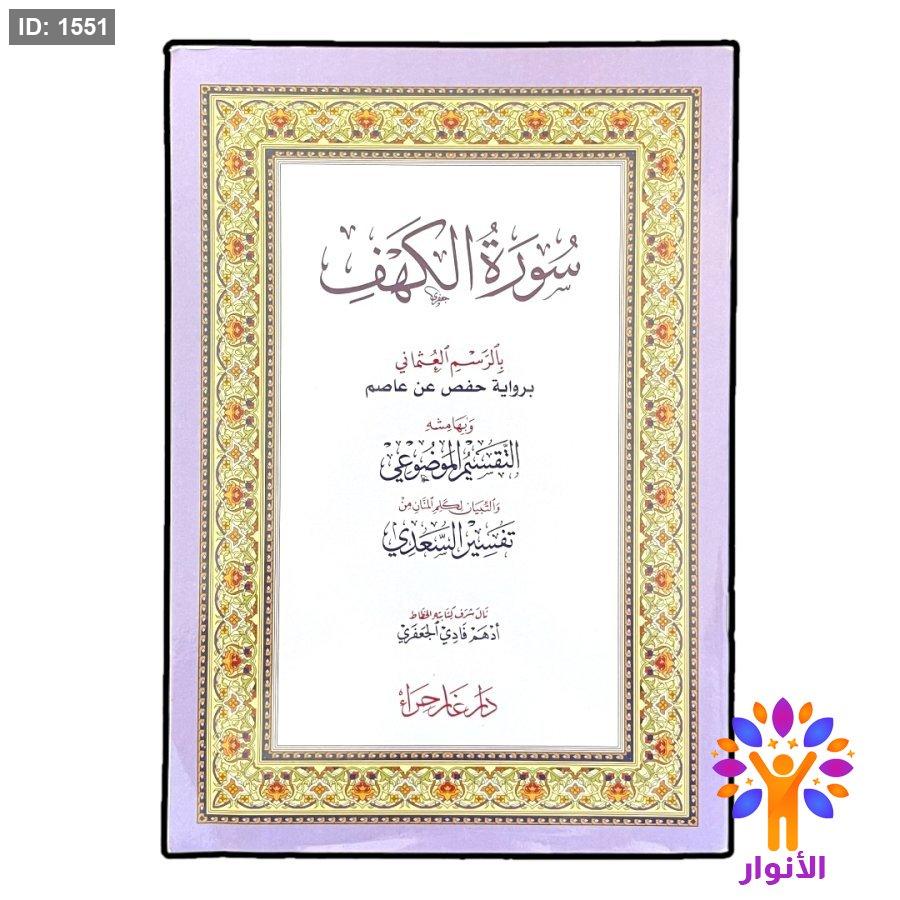 ID: 1551
سُورَةُ الكَهْفِ
جعفري
بِالرَّسْمِ العُثْمَانِي
برواية حفص عن عاصم
وَبِهَامِشِهِ
التَّقْسِيمُ المَوْضُوعِي
وَالتِّبْيَان لِكَلِمِ المَنَّانِ مِنْ
تَفْسِيرِ السَّعْدِي
نَالَ شَرَفَ كِتَابَتِهِ الخَطَّاط
أَدْهَم فَادِي الجَعْفَرِي
دَارُ غَارِ حِرَاء
الأنوار